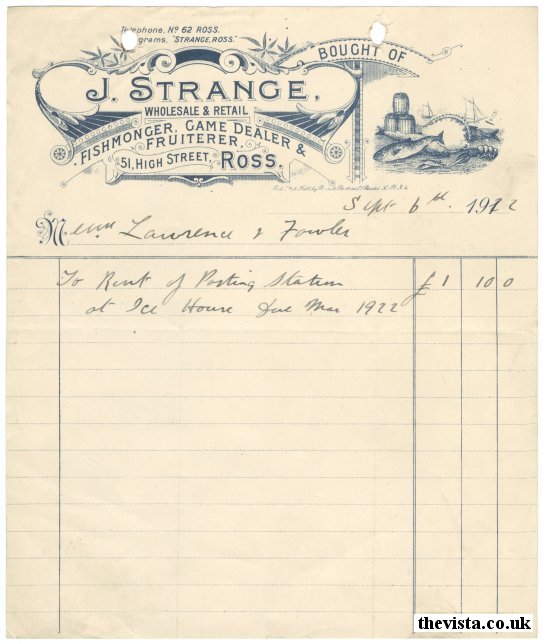 Telephone, No 62 ROSS.
grams, "STRANGE, ROSS."
BOUGHT OF
J. STRANGE,
WHOLESALE & RETAIL
FISHMONGER, GAME DEALER &
FRUITERER,
51, HIGH STREET, ROSS.
Sept 6th 1922
Messrs Lawrence & Fowler
To Rent of Posting Station £1 10 0
at Ice House due Mar 1922
thevista.co.uk